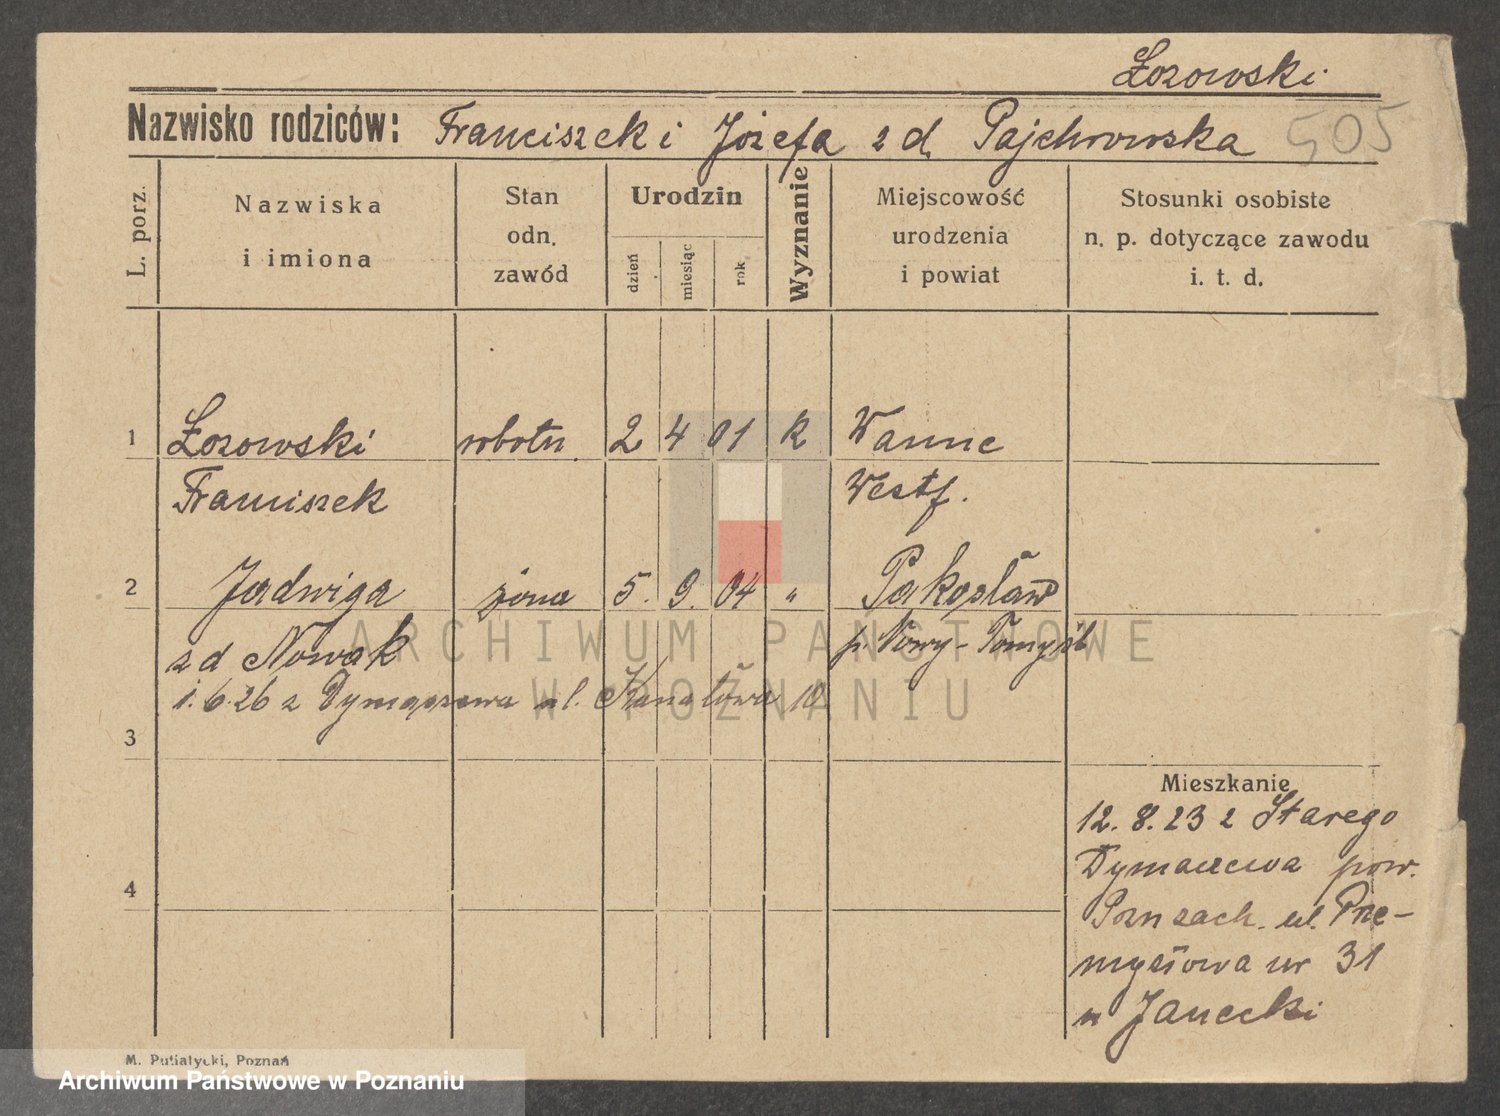 Łozowski
Nazwisko rodziców: Franciszek i Józefa z d. Pajchrowska 505
L. porz.
Nazwiska
i imiona
Stan
odn.
zawód
Urodzin
dzień
miesiąc
rok
Wyznanie
Miejscowość
urodzenia
i powiat
Stosunki osobiste
n. p. dotyczące zawodu
i. t. d.
1 Łozowski robotn. 2 4 01 k Wanne
Franciszek Westf.
2 Jadwiga żona 5. 9. 04 " Pakosław
z d Nowak p. Nowy-Tomyśl
1.6.26 z Dymaczewa ul. Kanałowa 10
3
Mieszkanie
12. 8. 23 z Starego
Dymaczewa pow.
4
Pozn zach. ul. Prze-
mysłowa nr 31
u Janecki
M. Putiatycki, Poznań
ARCHIWUM PAŃSTWOWE
W POZNANIU
Archiwum Państwowe w Poznaniu